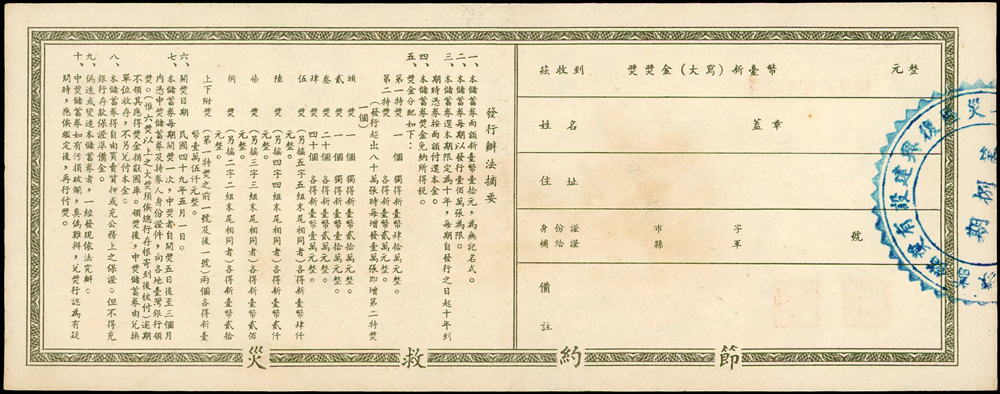 茲收到　獎獎金（大寫）新臺幣　元整
姓名　蓋章
住址
身份證　市　字　號
補給證　縣　軍
備註
災區復興建設有獎儲
期捌
發行辦法摘要
一、本儲蓄券面額新臺幣壹拾元，為無記名式。
二、本儲蓄券每期以發行壹佰萬張為限。
三、本儲蓄券還本期限定為十年，每期自發行之日起十年到
期時憑券按面額付還本金。
四、本儲蓄券獎金免納所得稅。
五、獎金分配如下：
第一特獎　一個　獨得新臺幣肆拾萬元整。
第二特獎
（發行超出八十萬張時每增發壹萬張即增第二特獎
一個）
頭獎　一個　獨得新臺幣貳拾萬元整。
貳獎　一個　獨得新臺幣壹拾萬元整。
叁獎　二十個　各得新臺幣貳萬元整。
肆獎　四十個　各得新臺幣壹萬元整。
伍獎　（另搖五字五組末尾相同者）各得新臺幣肆仟
元整。
陸獎　（另搖四字四組末尾相同者）各得新臺幣貳仟
元整。
柒獎　（另搖三字三組末尾相同者）各得新臺幣貳佰
元整。
捌獎　（另搖二字二組末尾相同者）各得新臺幣貳拾
元整。
上下附獎　（第一特獎之前一號及後一號）兩個各得新臺
幣壹萬伍仟元整。
六、開獎日期　民國四十九年五月一日。
七、本儲蓄券每期開獎一次，中獎者自開獎五日後至三個月
內憑中獎儲蓄券及持券人身份證件，向各地臺灣銀行領
獎。（惟六獎以上之大獎須俟總行存根寄到後核付）逾期
不領其應得獎金捐獻國庫。領獎後，中獎儲蓄券由兌換
單位收存，不另兌付本金。
八、本儲蓄券得自由買賣質押或充公務上之保證。但不得充
銀行存款保證準備金。
九、偽造或變造本儲蓄券者，一經發現依法究辦。
十、中獎儲蓄券如有污損破爛，真偽難辨，兌獎行認為有疑
問時，應俟鑑定後，再行付獎。
節約救災